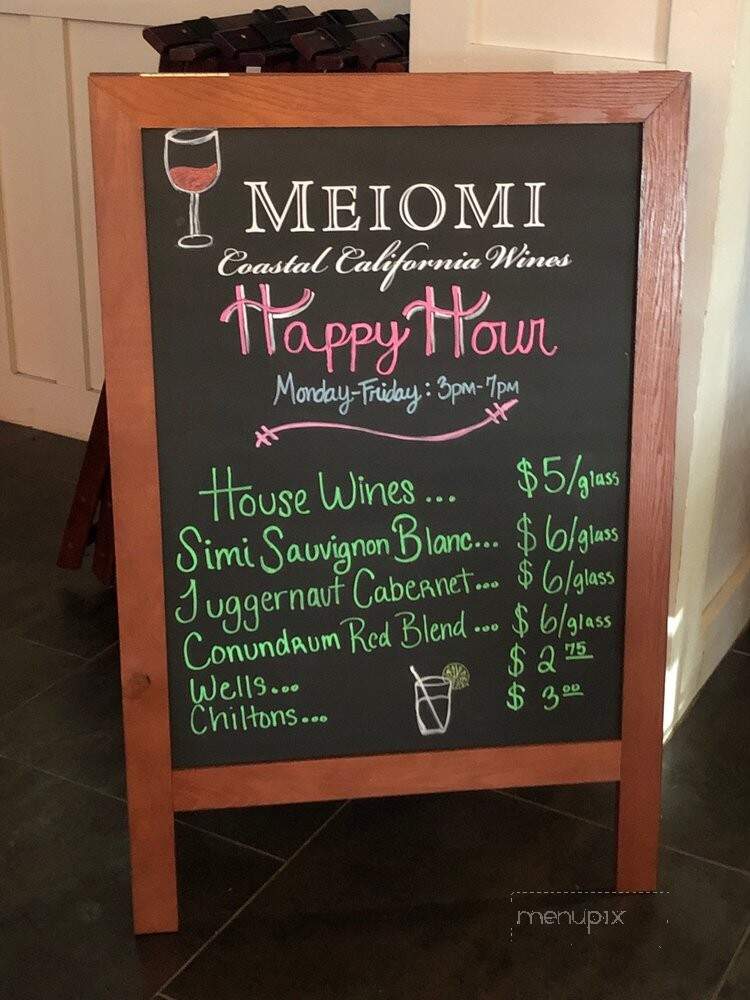 MEIOMI
Coastal California Wines
Happy Hour
Monday-Friday: 3pm-7pm
House Wines ... $5/glass
Simi Sauvignon Blanc... $6/glass
Juggernaut Cabernet... $6/glass
Conundrum Red Blend ... $6/glass
Wells... $2 75
Chiltons... $3 00
menupix